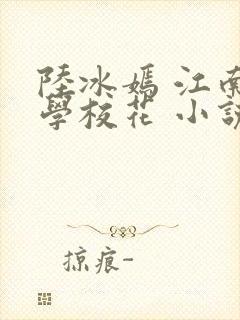 陸冰嫣 江南
學校花 小說
掠痕-